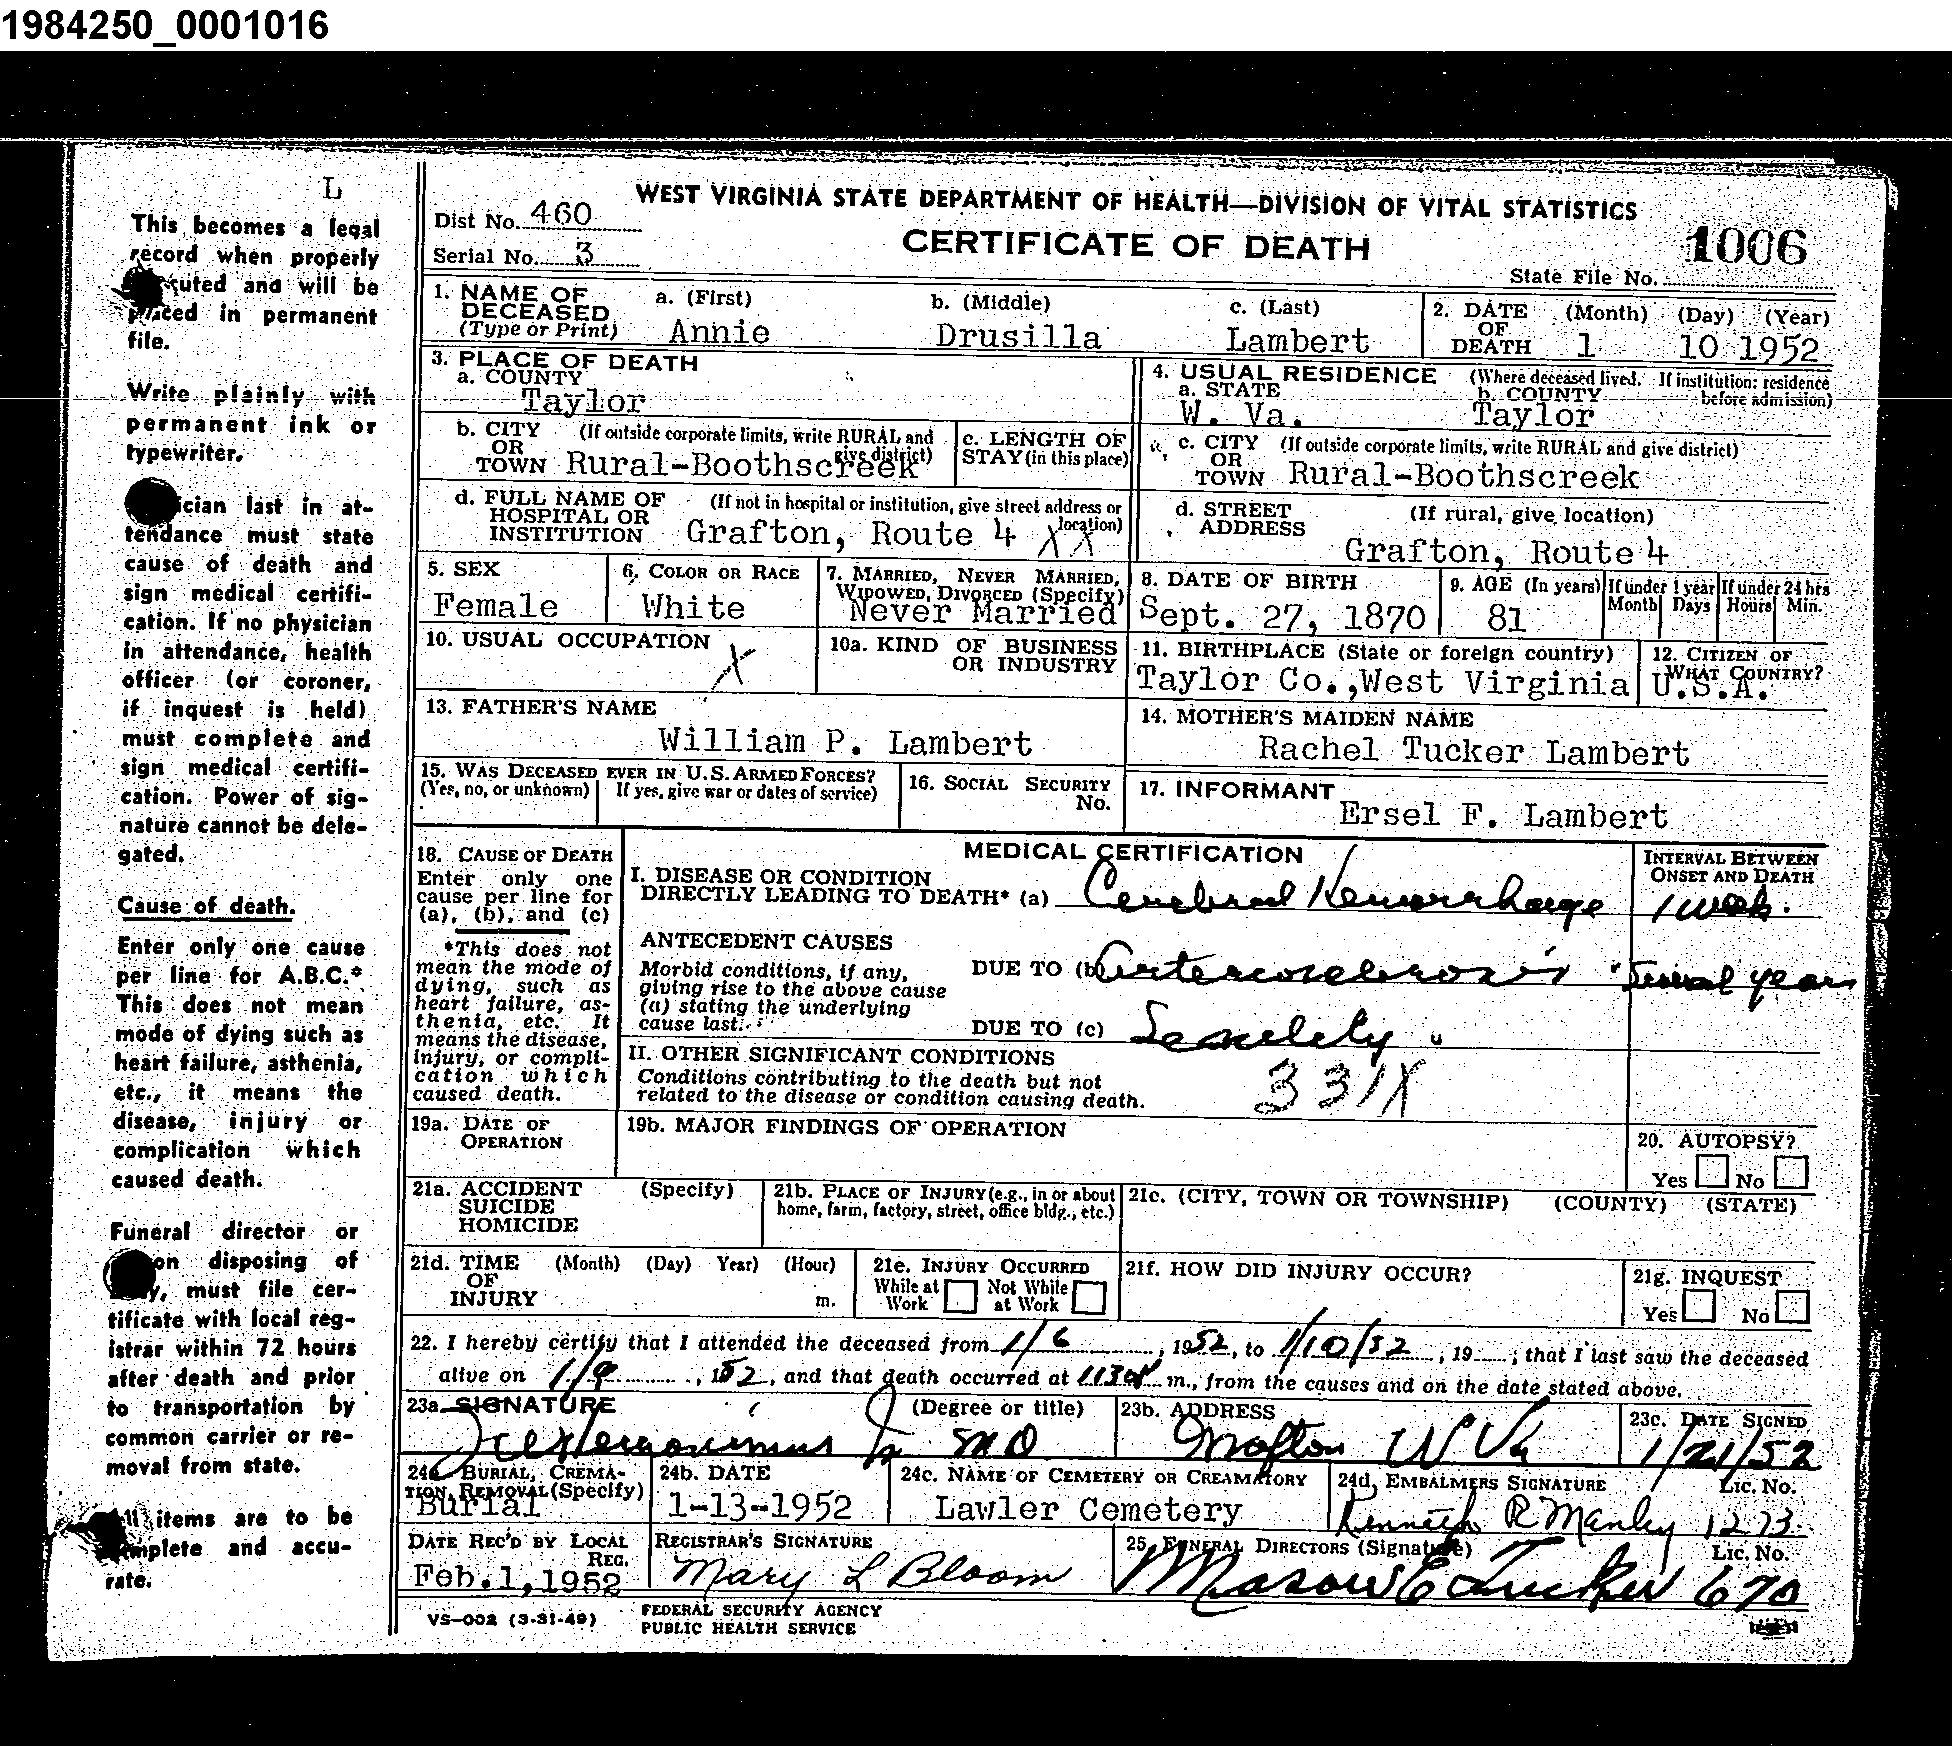 1984250_0001016
L
This becomes a legal
record when properly
cuted and will be
placed in permanent
file.
Write plainly with
permanent ink or
typewriter.
ician last in at-
tendance must state
cause of death and
sign medical certifi-
cation. If no physician
in attendance, health
officer (or coroner,
if inquest is held)
must complete and
sign medical certifi-
cation. Power of sig-
nature cannot be dele-
gated.
Cause of death.
Enter only one cause
per line for A.B.C.*
This does not mean
mode of dying such as
heart failure, asthenia,
etc., it means the
disease, injury or
complication which
caused death.
Funeral director or
on disposing of
must file cer-
tificate with local reg-
istrar within 72 hours
after death and prior
to transportation by
common carrier or re-
moval from state.
items are to be
mplete and accu-
rate.
WEST VIRGINIA STATE DEPARTMENT OF HEALTH—DIVISION OF VITAL STATISTICS
Dist No. 460
CERTIFICATE OF DEATH
Serial No. 3
State File No. 1006
1. NAME OF DECEASED (Type or Print) a. (First) Annie b. (Middle) Drusilla c. (Last) Lambert
2. DATE OF DEATH (Month) (Day) (Year) 1 10 1952
3. PLACE OF DEATH
a. COUNTY Taylor
b. CITY OR TOWN (If outside corporate limits, write RURAL and give district) Rural-Boothscreek
c. LENGTH OF STAY (in this place)
d. FULL NAME OF HOSPITAL OR INSTITUTION (If not in hospital or institution, give street address or location) Grafton, Route 4 XX
4. USUAL RESIDENCE (Where deceased lived. If institution: residence before admission)
a. STATE W. Va. b. COUNTY Taylor
c. CITY OR TOWN (If outside corporate limits, write RURAL and give district) Rural-Boothscreek
d. STREET ADDRESS (If rural, give location) Grafton, Route 4
5. SEX Female
6. COLOR OR RACE White
7. MARRIED, NEVER MARRIED, WIDOWED, DIVORCED (Specify) Never Married
8. DATE OF BIRTH Sept. 27, 1870
9. AGE (In years) 81 If under 1 year Month Days If under 24 hrs Hours Min.
10. USUAL OCCUPATION X
10a. KIND OF BUSINESS OR INDUSTRY
11. BIRTHPLACE (State or foreign country) Taylor Co.,West Virginia
12. CITIZEN OF WHAT COUNTRY? U.S.A.
13. FATHER'S NAME William P. Lambert
14. MOTHER'S MAIDEN NAME Rachel Tucker Lambert
15. WAS DECEASED EVER IN U.S. ARMED FORCES?
(Yes, no, or unknown) If yes, give war or dates of service)
16. SOCIAL SECURITY No.
17. INFORMANT Ersel F. Lambert
18. CAUSE OF DEATH
Enter only one
cause per line for
(a), (b), and (c)
*This does not
mean the mode of
dying, such as
heart failure, as-
thenia, etc. It
means the disease,
injury, or compli-
cation which
caused death.
MEDICAL CERTIFICATION
INTERVAL BETWEEN ONSET AND DEATH
I. DISEASE OR CONDITION
DIRECTLY LEADING TO DEATH* (a) Cerebral Hemorrhage 1 week.
ANTECEDENT CAUSES
Morbid conditions, if any,
giving rise to the above cause
(a) stating the underlying
cause last.
DUE TO (b) Several years
DUE TO (c)
II. OTHER SIGNIFICANT CONDITIONS
Conditions contributing to the death but not
related to the disease or condition causing death.
331X
19a. DATE OF OPERATION
19b. MAJOR FINDINGS OF OPERATION
20. AUTOPSY?
Yes No
21a. ACCIDENT SUICIDE HOMICIDE (Specify)
21b. PLACE OF INJURY (e.g., in or about home, farm, factory, street, office bldg., etc.)
21c. (CITY, TOWN OR TOWNSHIP) (COUNTY) (STATE)
21d. TIME OF INJURY (Month) (Day) Year) (Hour) m.
21e. INJURY OCCURRED
While at Work Not While at Work
21f. HOW DID INJURY OCCUR?
21g. INQUEST
Yes No
22. I hereby certify that I attended the deceased from 1/6, 1952, to 1/10/52, 19......; that I last saw the deceased
alive on 1/9, 152, and that death occurred at 1130 m., from the causes and on the date stated above.
23a. SIGNATURE (Degree or title) MD
23b. ADDRESS Grafton W Va
23c. DATE SIGNED 1/21/52
24a. BURIAL, CREMATION, REMOVAL (Specify) Burial
24b. DATE 1-13-1952
24c. NAME OF CEMETERY OR CREAMATORY Lawler Cemetery
24d. EMBALMERS SIGNATURE Lic. No. Kenneth R Manley 1273
DATE REC'D BY LOCAL REG. Feb.1,1952
REGISTRAR'S SIGNATURE Mary L Bloom
25. FUNERAL DIRECTORS (Signature) Lic. No. Mason E Tucker 670
VS—002 (3-31-49)
FEDERAL SECURITY AGENCY
PUBLIC HEALTH SERVICE